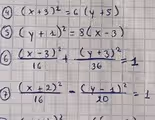 ④ (x+3)² = 6(y+5)
⑤ (y+1)² = 8(x-3)
⑥ (x-3)²/16 + (y+3)²/36 = 1
⑦ (x+2)²/16 - (y-1)²/20 = 1